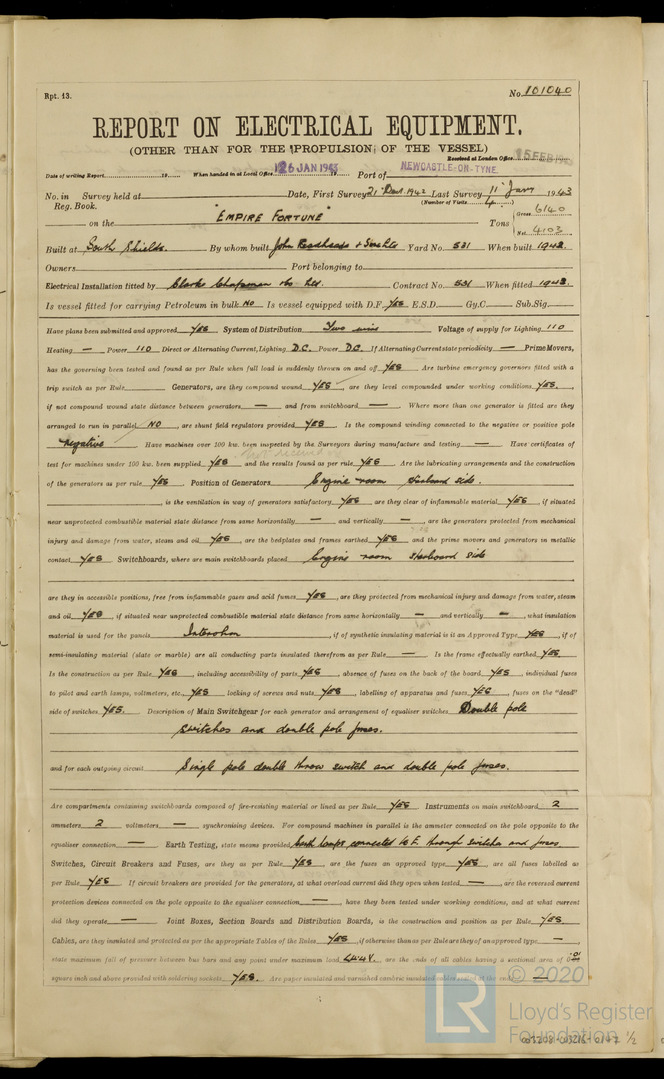 Rpt. 13.
No. 101040
REPORT ON ELECTRICAL EQUIPMENT.
(OTHER THAN FOR THE PROPULSION OF THE VESSEL)
Received at London Office 15 FEB
Date of writing Report 19 When handed in at Local Office 26 JAN 1943 19 Port of NEWCASTLE-ON-TYNE
No. in Survey held at Date, First Survey 21 1942 Last Survey 11 Jany 1943
Reg. Book. (Number of Visits 4)
on the "EMPIRE FORTUNE" Tons Gross 6140 Net 4103
Built at South Shields. By whom built John Readheads & Sons Ltd Yard No. 531 When built 1943.
Owners Port belonging to
Electrical Installation fitted by Clarke Chapman & Co Ltd. Contract No. 531 When fitted 1943.
Is vessel fitted for carrying Petroleum in bulk NO Is vessel equipped with D.F. YES E.S.D. Gy.C. Sub.Sig.
Have plans been submitted and approved YES System of Distribution Two wire Voltage of supply for Lighting 110
Heating — Power 110 Direct or Alternating Current, Lighting D.C. Power D.C. If Alternating Current state periodicity — Prime Movers,
has the governing been tested and found as per Rule when full load is suddenly thrown on and off YES Are turbine emergency governors fitted with a
trip switch as per Rule Generators, are they compound wound YES, are they level compounded under working conditions YES,
if not compound wound state distance between generators — and from switchboard — Where more than one generator is fitted are they
arranged to run in parallel NO, are shunt field regulators provided YES Is the compound winding connected to the negative or positive pole
negative Have machines over 100 kw. been inspected by the Surveyors during manufacture and testing — Have certificates of
test for machines under 100 kw. been supplied YES and the results found as per rule YES Are the lubricating arrangements and the construction
of the generators as per rule YES Position of Generators Engine room Starboard side.
, is the ventilation in way of generators satisfactory YES are they clear of inflammable material YES, if situated
near unprotected combustible material state distance from same horizontally — and vertically —, are the generators protected from mechanical
injury and damage from water, steam and oil YES, are the bedplates and frames earthed YES and the prime movers and generators in metallic
contact YES Switchboards, where are main switchboards placed Engine room Starboard side
are they in accessible positions, free from inflammable gases and acid fumes YES, are they protected from mechanical injury and damage from water, steam
and oil YES, if situated near unprotected combustible material state distance from same horizontally — and vertically —, what insulation
material is used for the panels , if of synthetic insulating material is it an Approved Type YES, if of
semi-insulating material (slate or marble) are all conducting parts insulated therefrom as per Rule — Is the frame effectually earthed YES
Is the construction as per Rule YES, including accessibility of parts YES, absence of fuses on the back of the board YES, individual fuses
to pilot and earth lamps, voltmeters, etc., YES locking of screws and nuts YES, labelling of apparatus and fuses YES, fuses on the "dead"
side of switches YES. Description of Main Switchgear for each generator and arrangement of equaliser switches Double pole
switches and double pole fuses.
and for each outgoing circuit Single pole double throw switch and double pole fuses.
Are compartments containing switchboards composed of fire-resisting material or lined as per Rule YES Instruments on main switchboard 2
ammeters 2 voltmeters — synchronising devices. For compound machines in parallel is the ammeter connected on the pole opposite to the
equaliser connection — Earth Testing, state means provided Earth lamps connected to E. through switches and fuses
Switches, Circuit Breakers and Fuses, are they as per Rule YES, are the fuses an approved type YES, are all fuses labelled as
per Rule YES If circuit breakers are provided for the generators, at what overload current did they open when tested —, are the reversed current
protection devices connected on the pole opposite to the equaliser connection — have they been tested under working conditions, and at what current
did they operate — Joint Boxes, Section Boards and Distribution Boards, is the construction and position as per Rule YES
Cables, are they insulated and protected as per the appropriate Tables of the Rules YES, if otherwise than as per Rule are they of an approved type —,
state maximum fall of pressure between bus bars and any point under maximum load 4.44V. are the ends of all cables having a sectional area of
square inch and above provided with soldering sockets YES. Are paper insulated and varnished cambric insulated cables sealed at the ends —
LR
© 2020
Lloyd's Register
Foundation
003208-003216-0147 1/2